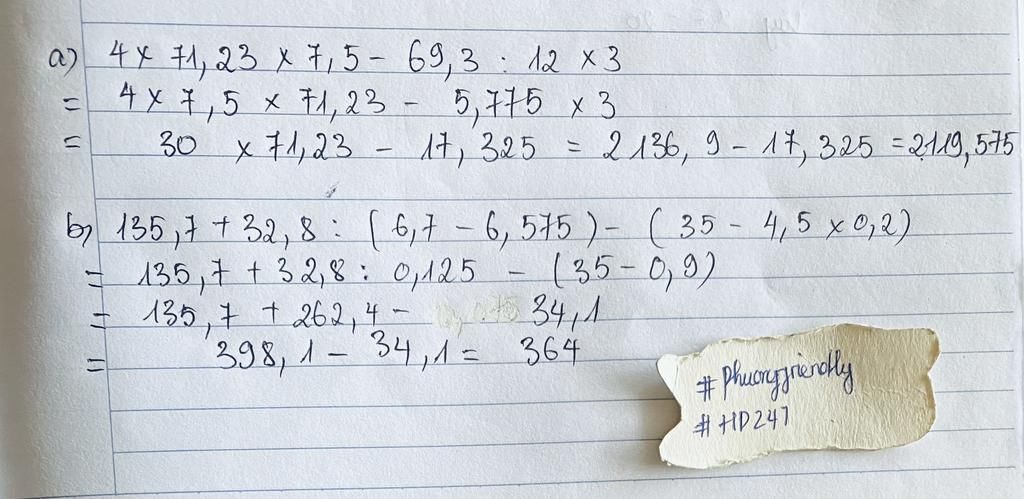 a) 4 x 71,23 x 7,5 - 69,3 : 12 x 3
= 4 x 7,5 x 71,23 - 5,775 x 3
= 30 x 71,23 - 17,325 = 2136,9 - 17,325 = 2119,575
b) 135,7 + 32,8 : (6,7 - 6,575) - (35 - 4,5 x 0,2)
= 135,7 + 32,8 : 0,125 - (35 - 0,9)
= 135,7 + 262,4 - 34,1
= 398,1 - 34,1 = 364
# Phuongfriendly
# HD247